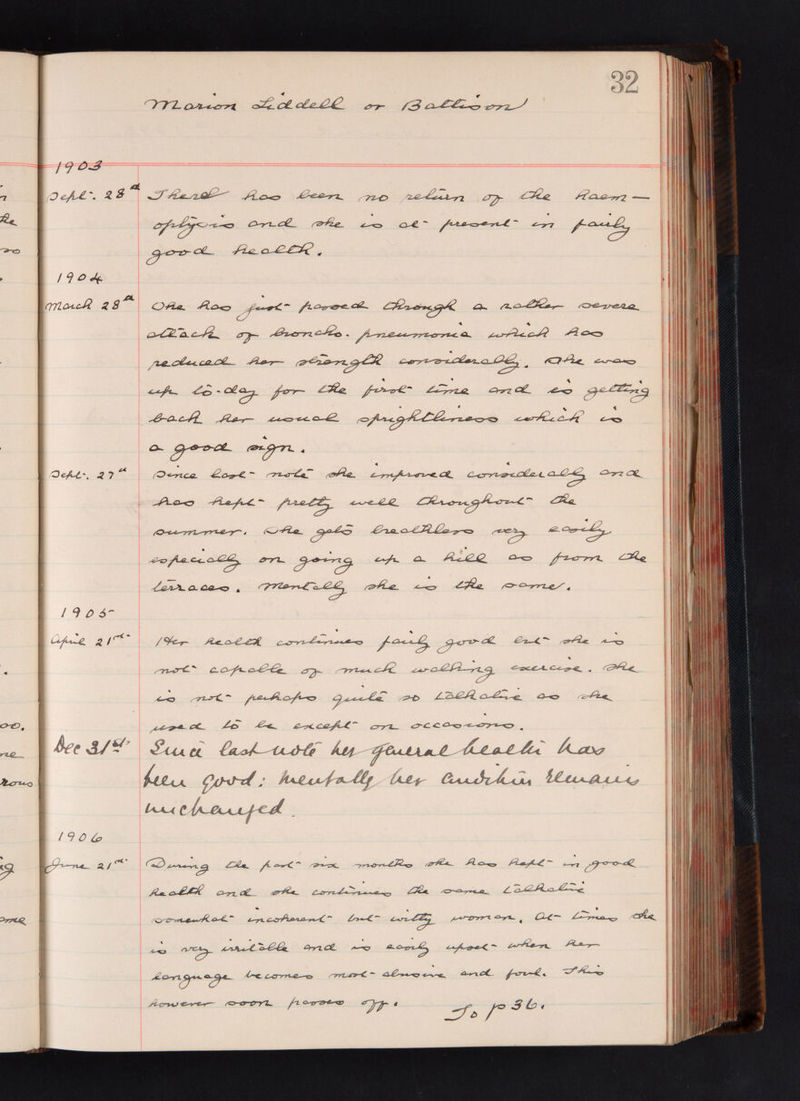 32
Marion Liddell or Battison
1903
Sept. 28th There has been no return of the haem-
optysis and she is at present in fairly
good health.
1904
March 28th She has just passed through a rather severe
attack of broncho-pneumonia which has
reduced her strength considerably. She was
up to-day for the first time and is getting
back her usual sprightliness which is
a good sign.
Sept. 27th Since last note she improved considerably and
has kept pretty well throughout the
summer. She gets breathless very easily
especially on going up a hill as from the
terraces. Mentally she is the same.
1905
April 21st Her health continues fairly good but she is
not capable of much walking exercise. She
is not perhaps quite so talkative as she
used to be except on occasions.
Dec 31st Since last note her general health has
been good: mentally her condition remains
unchanged.
1906
June 21st During the past six months she has kept in good
health and she continues the same talkative
somewhat incoherent but witty woman. At times she
is very irritable and is easily upset when her
language becomes most abusive and foul. This
however soon passes off.
To p 36.